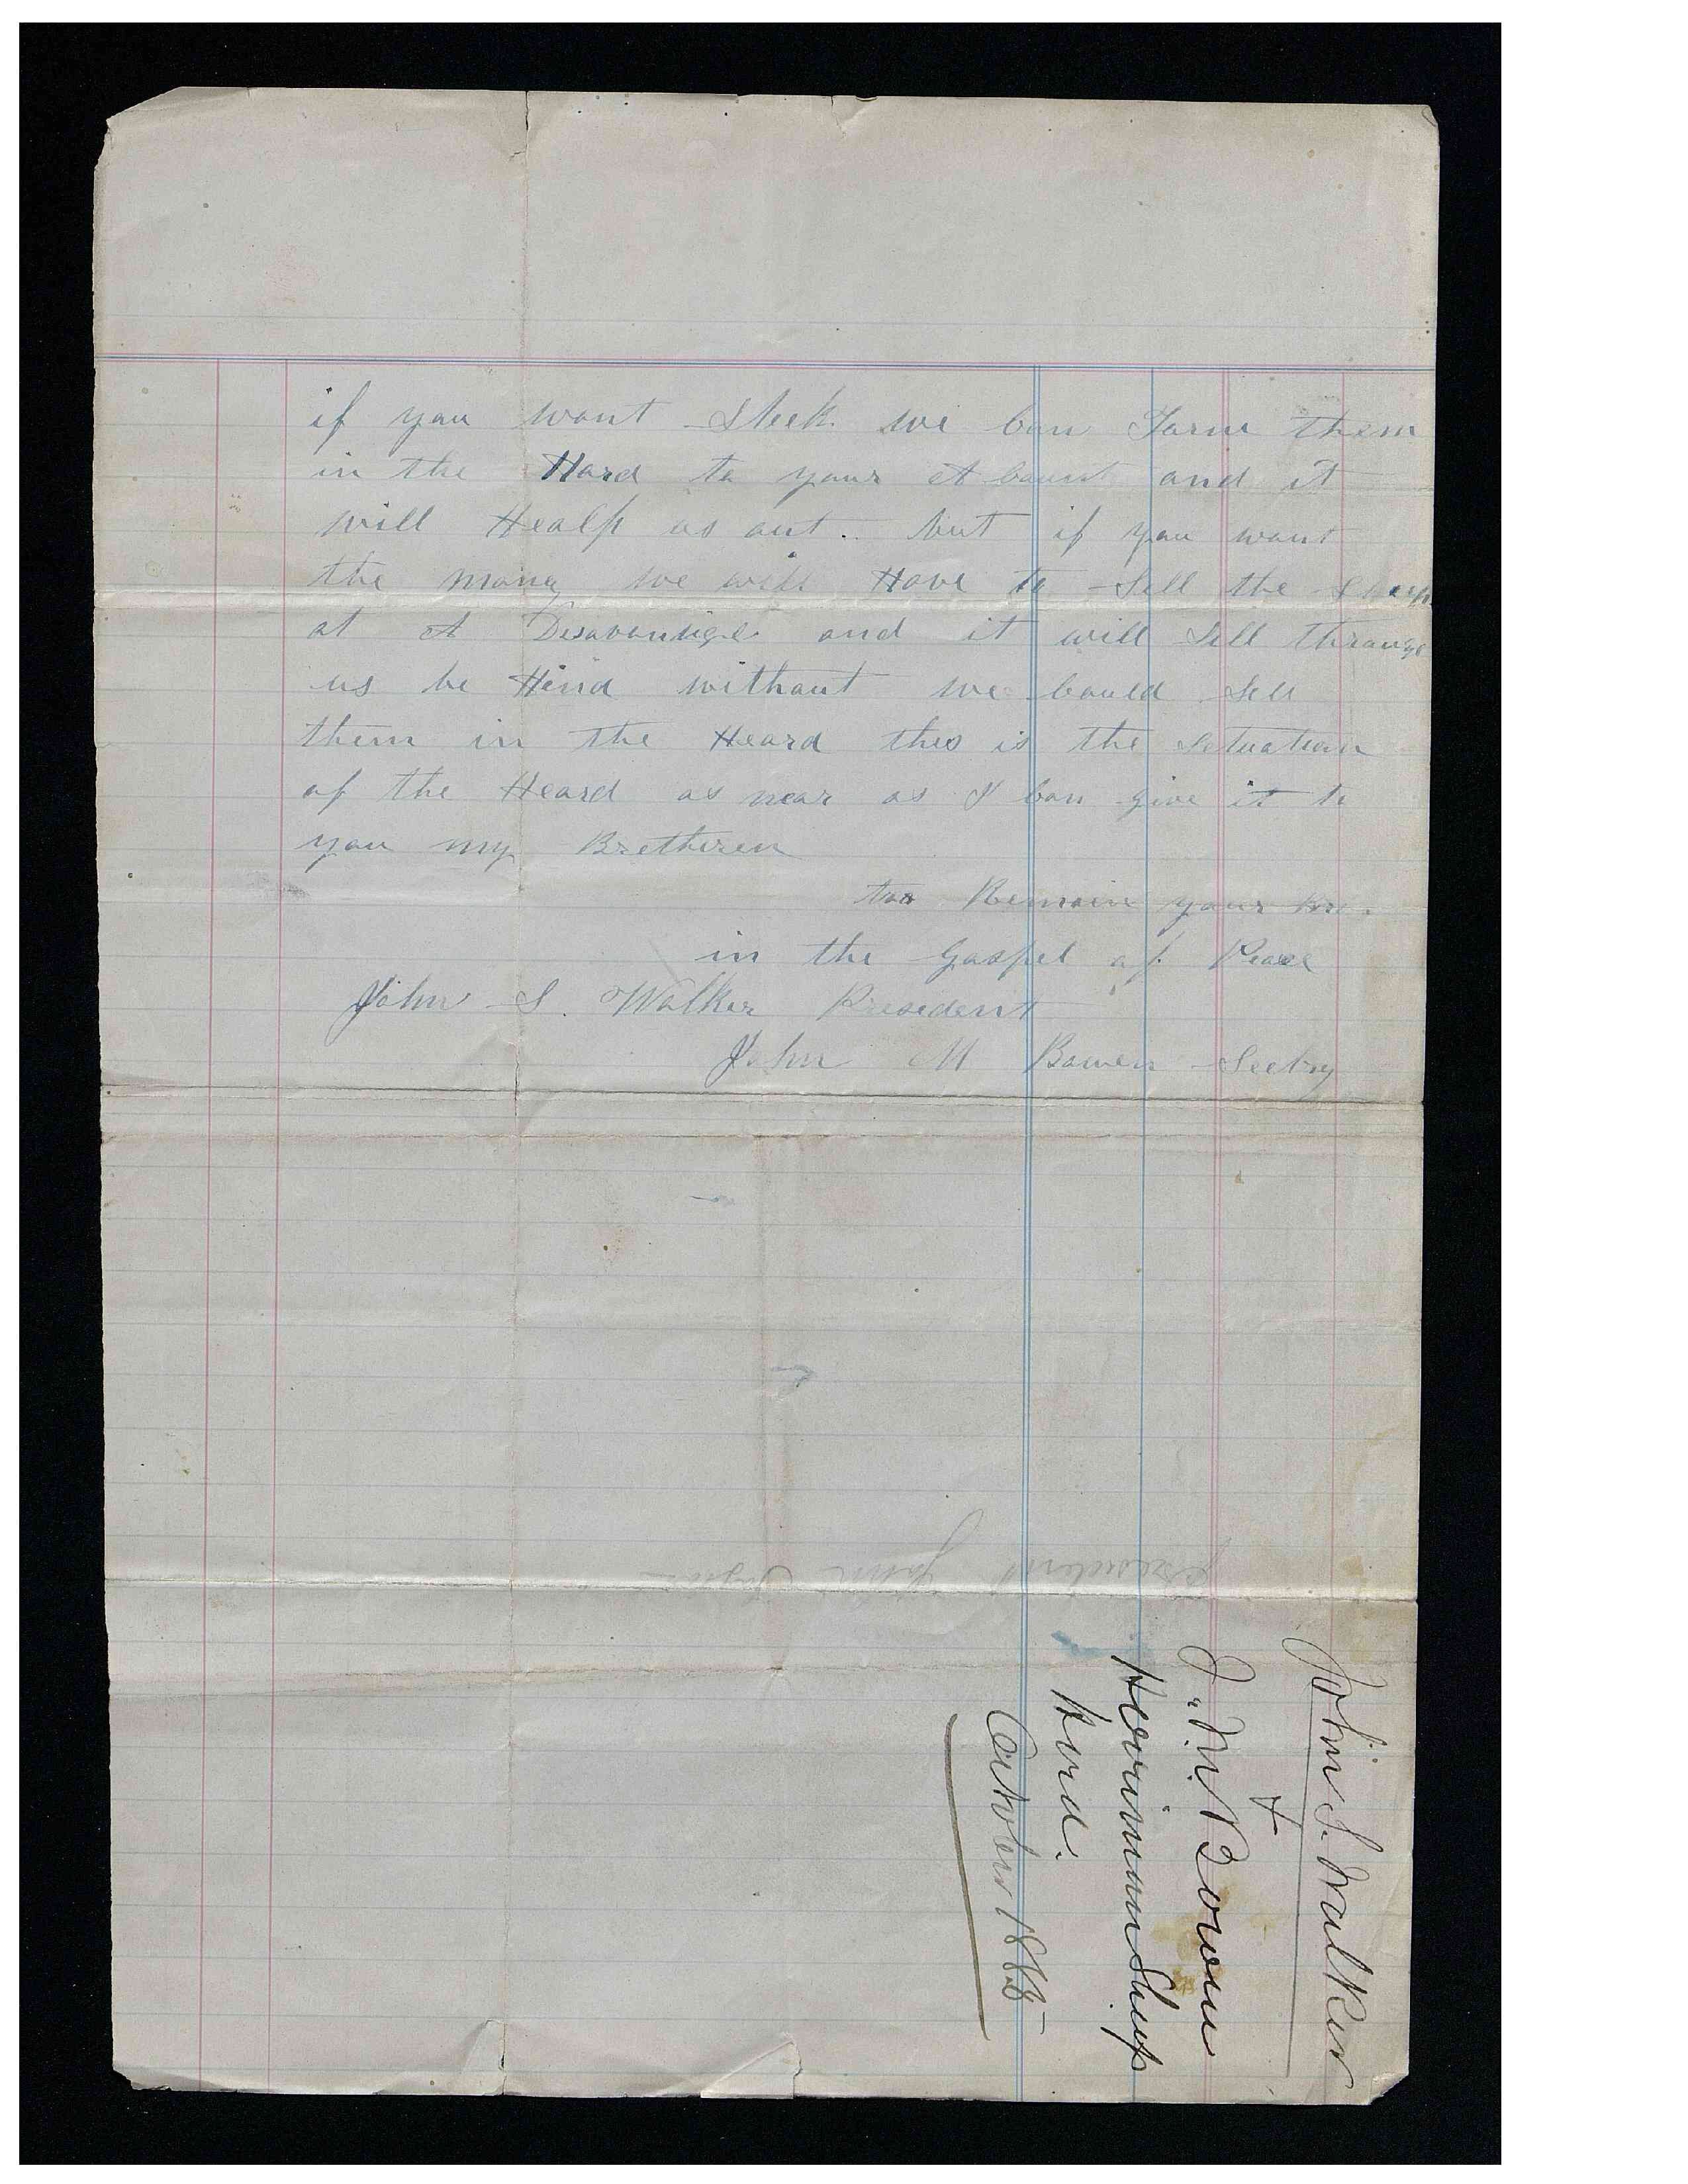 if you want Sheep we can Turn them
in the Hard to your A Count and it
will Healp us out.. but if you want
the mony we will Have to Sell the Sheep
at A Disavantige and it will Sell through
us be Hind without we Could Sell
them in the Heard this is the Situation
of the Heard as near as I Can give it to
you my Bretheren
too Remain your bre.
in the Gospel of Peace
John S. Walker President
John M Bowen Sectry
president John Taylor
John S. Walker
&
J. M. Bowen
Herriman Sheep
herd.
October 1885